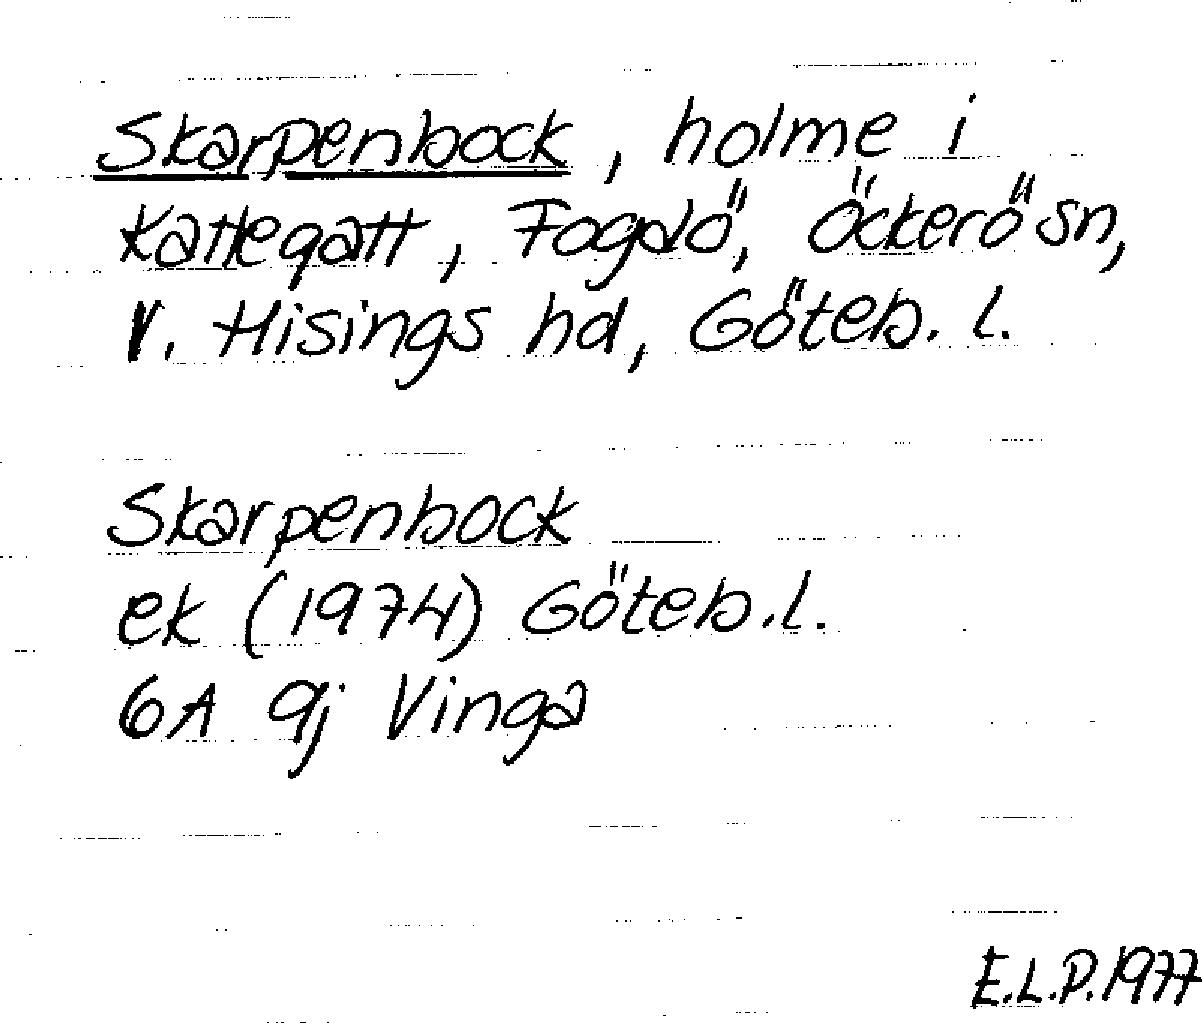 Skarpenbock, holme i
Kattegatt, Fogdö, Öckerö sn,
V. Hisings hd, Göteb. l.
Skarpenbock
ek (1974) Göteb.l.
6A 9j Vinga
E.L.P. 1977